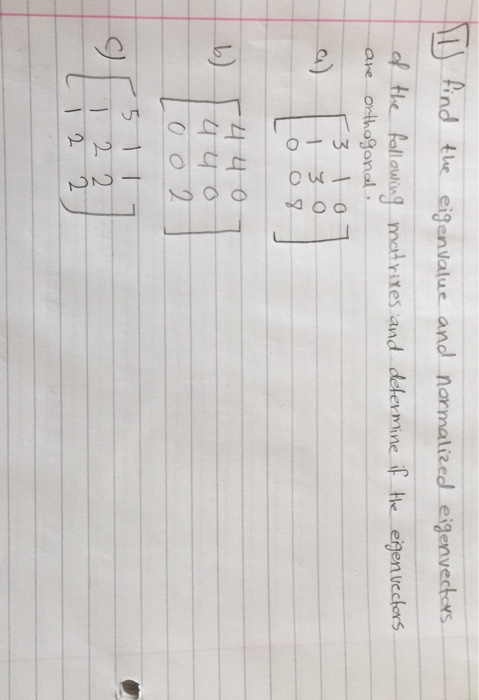 1] find the eigenvalue and normalized eigenvectors
of the following matrixes and determine if the eigenvectors
are orthogonal.
a) [3 1 0
1 3 0
0 0 8]
b) [4 4 0
4 4 0
0 0 2]
c) [5 1 1
1 2 2
1 2 2]